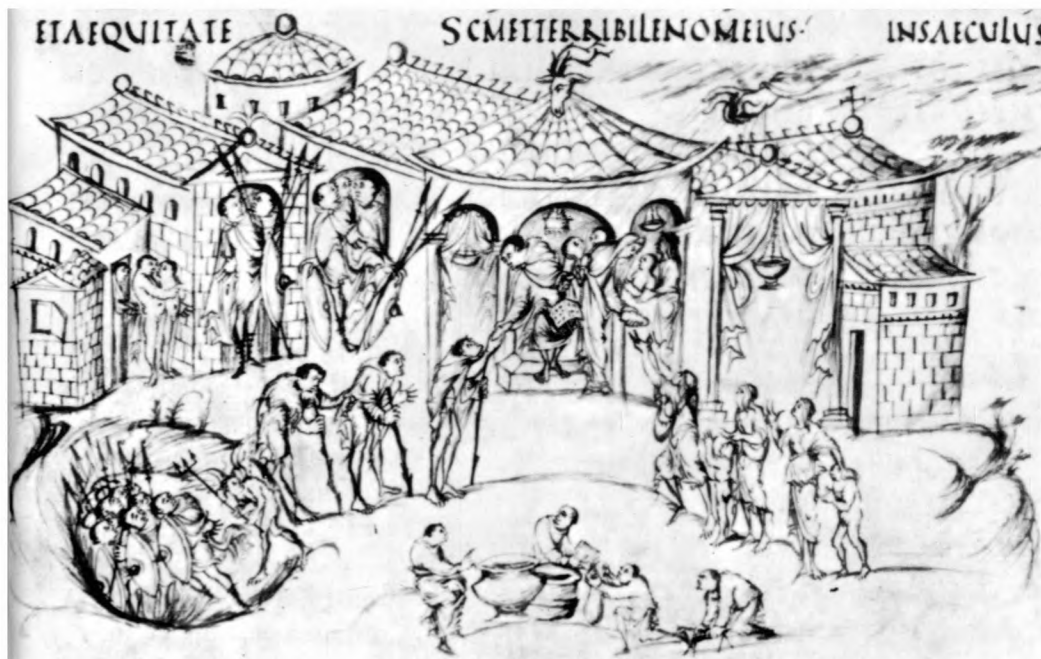 ETAEQUITATE SCMETTERRIBILENOMEIUS· INSAECULUS